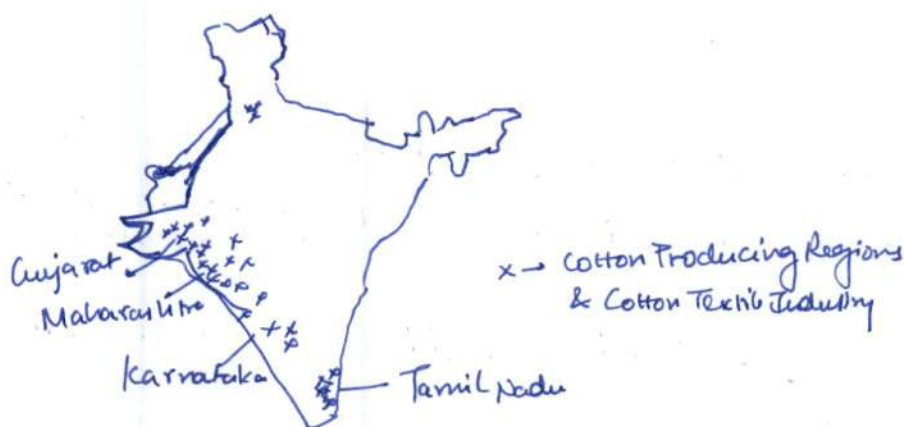 Gujarat
Maharashtra
Karnataka
Tamil Nadu
x → Cotton Producing Regions
& Cotton Textile Industry